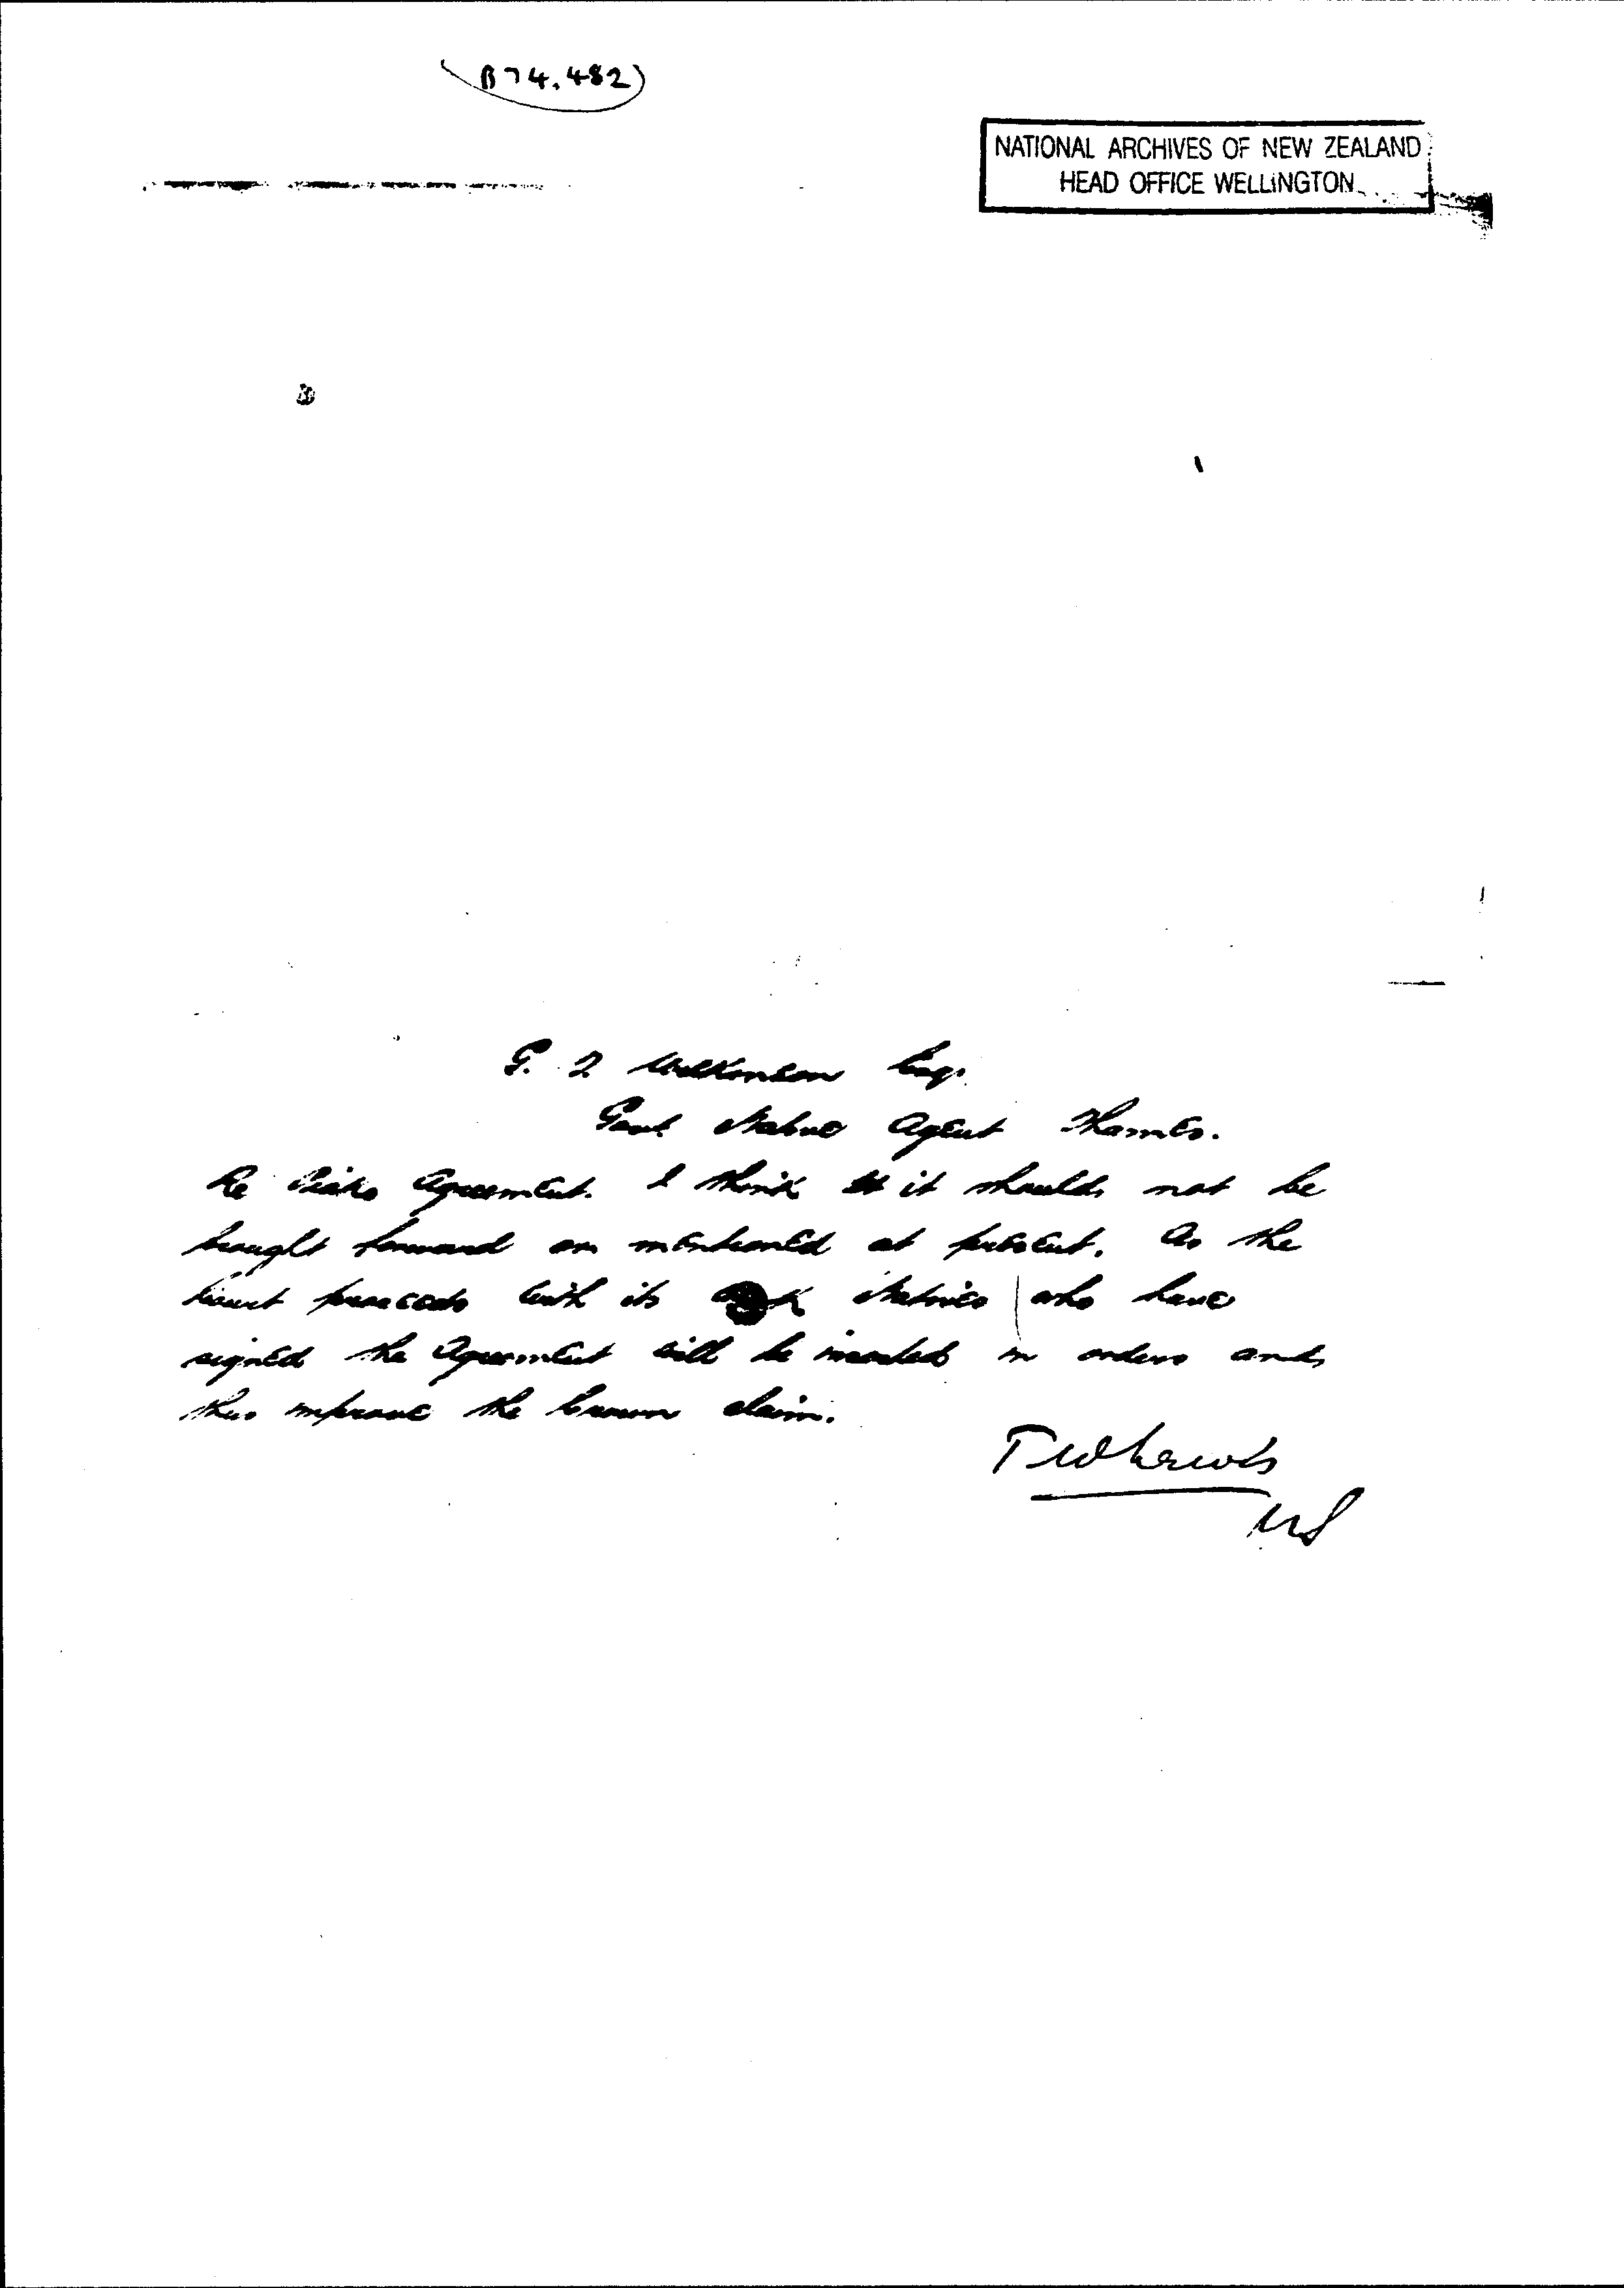 (B74.482)
NATIONAL ARCHIVES OF NEW ZEALAND
HEAD OFFICE WELLINGTON
G. T. Wilkinson Esq.
Govt. Native Agent Thames.
Re Piako Agreement. I think it should not be
brought forward or mentioned at present. As the
Court proceeds with its work Natives who have
signed the Agreement will be inserted in orders and
thus improve the Crown claim.
T W Lewis
US